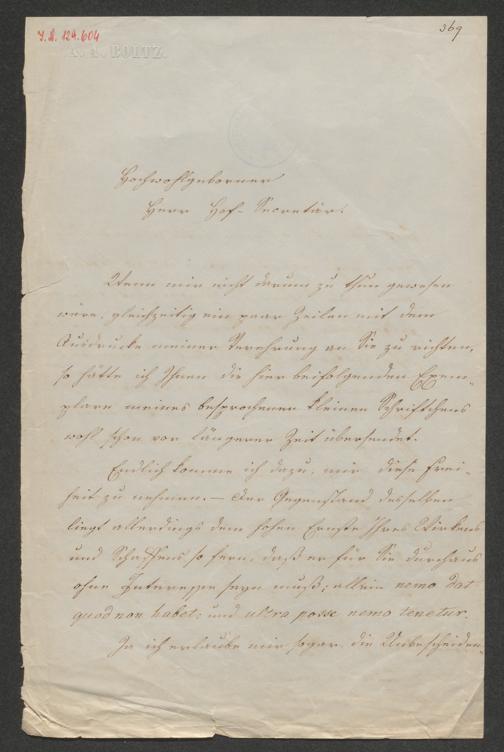 J.N. 124.604
369
A. A. BOLTZ.
Hochwohlgeborner
Herr Hof-Secretär!
Wenn mir nicht darum zu thun gewesen
wäre, gleichzeitig ein paar Zeilen mit dem
Ausdrucke meiner Verehrung an Sie zu richten,
so hätte ich Ihnen die hier beifolgenden Exem-
plare meines besprochenen kleinen Schriftchens
wohl schon vor längerer Zeit übersendet.
Endlich komme ich dazu, mir diese Frei-
heit zu nehmen. – Der Gegenstand desselben
liegt allerdings dem hohen Ernste Ihres Wirkens
und Schaffens so fern, daß er für Sie durchaus
ohne Interesse seyn muß; allein nemo dat
quod non habet; und ultra posse nemo tenetur.
Ja ich erlaube mir sogar die Unbescheiden-